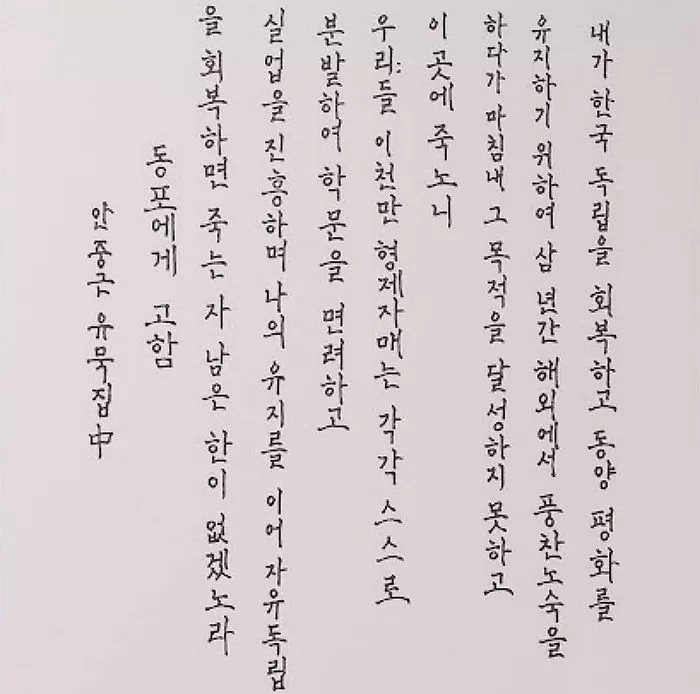 내가 한국 독립을 회복하고 동양 평화를
유지하기 위하여 삼 년간 해외에서 풍찬노숙을
하다가 마침내 그 목적을 달성하지 못하고
이 곳에 죽노니
우리들 이천만 형제자매는 각각 스스로
분발하여 학문을 면려하고
실업을 진흥하며 나의 유지를 이어 자유독립
을 회복하면 죽는 자 남은 한이 없겠노라
동포에게 고함
안중근 유묵집中